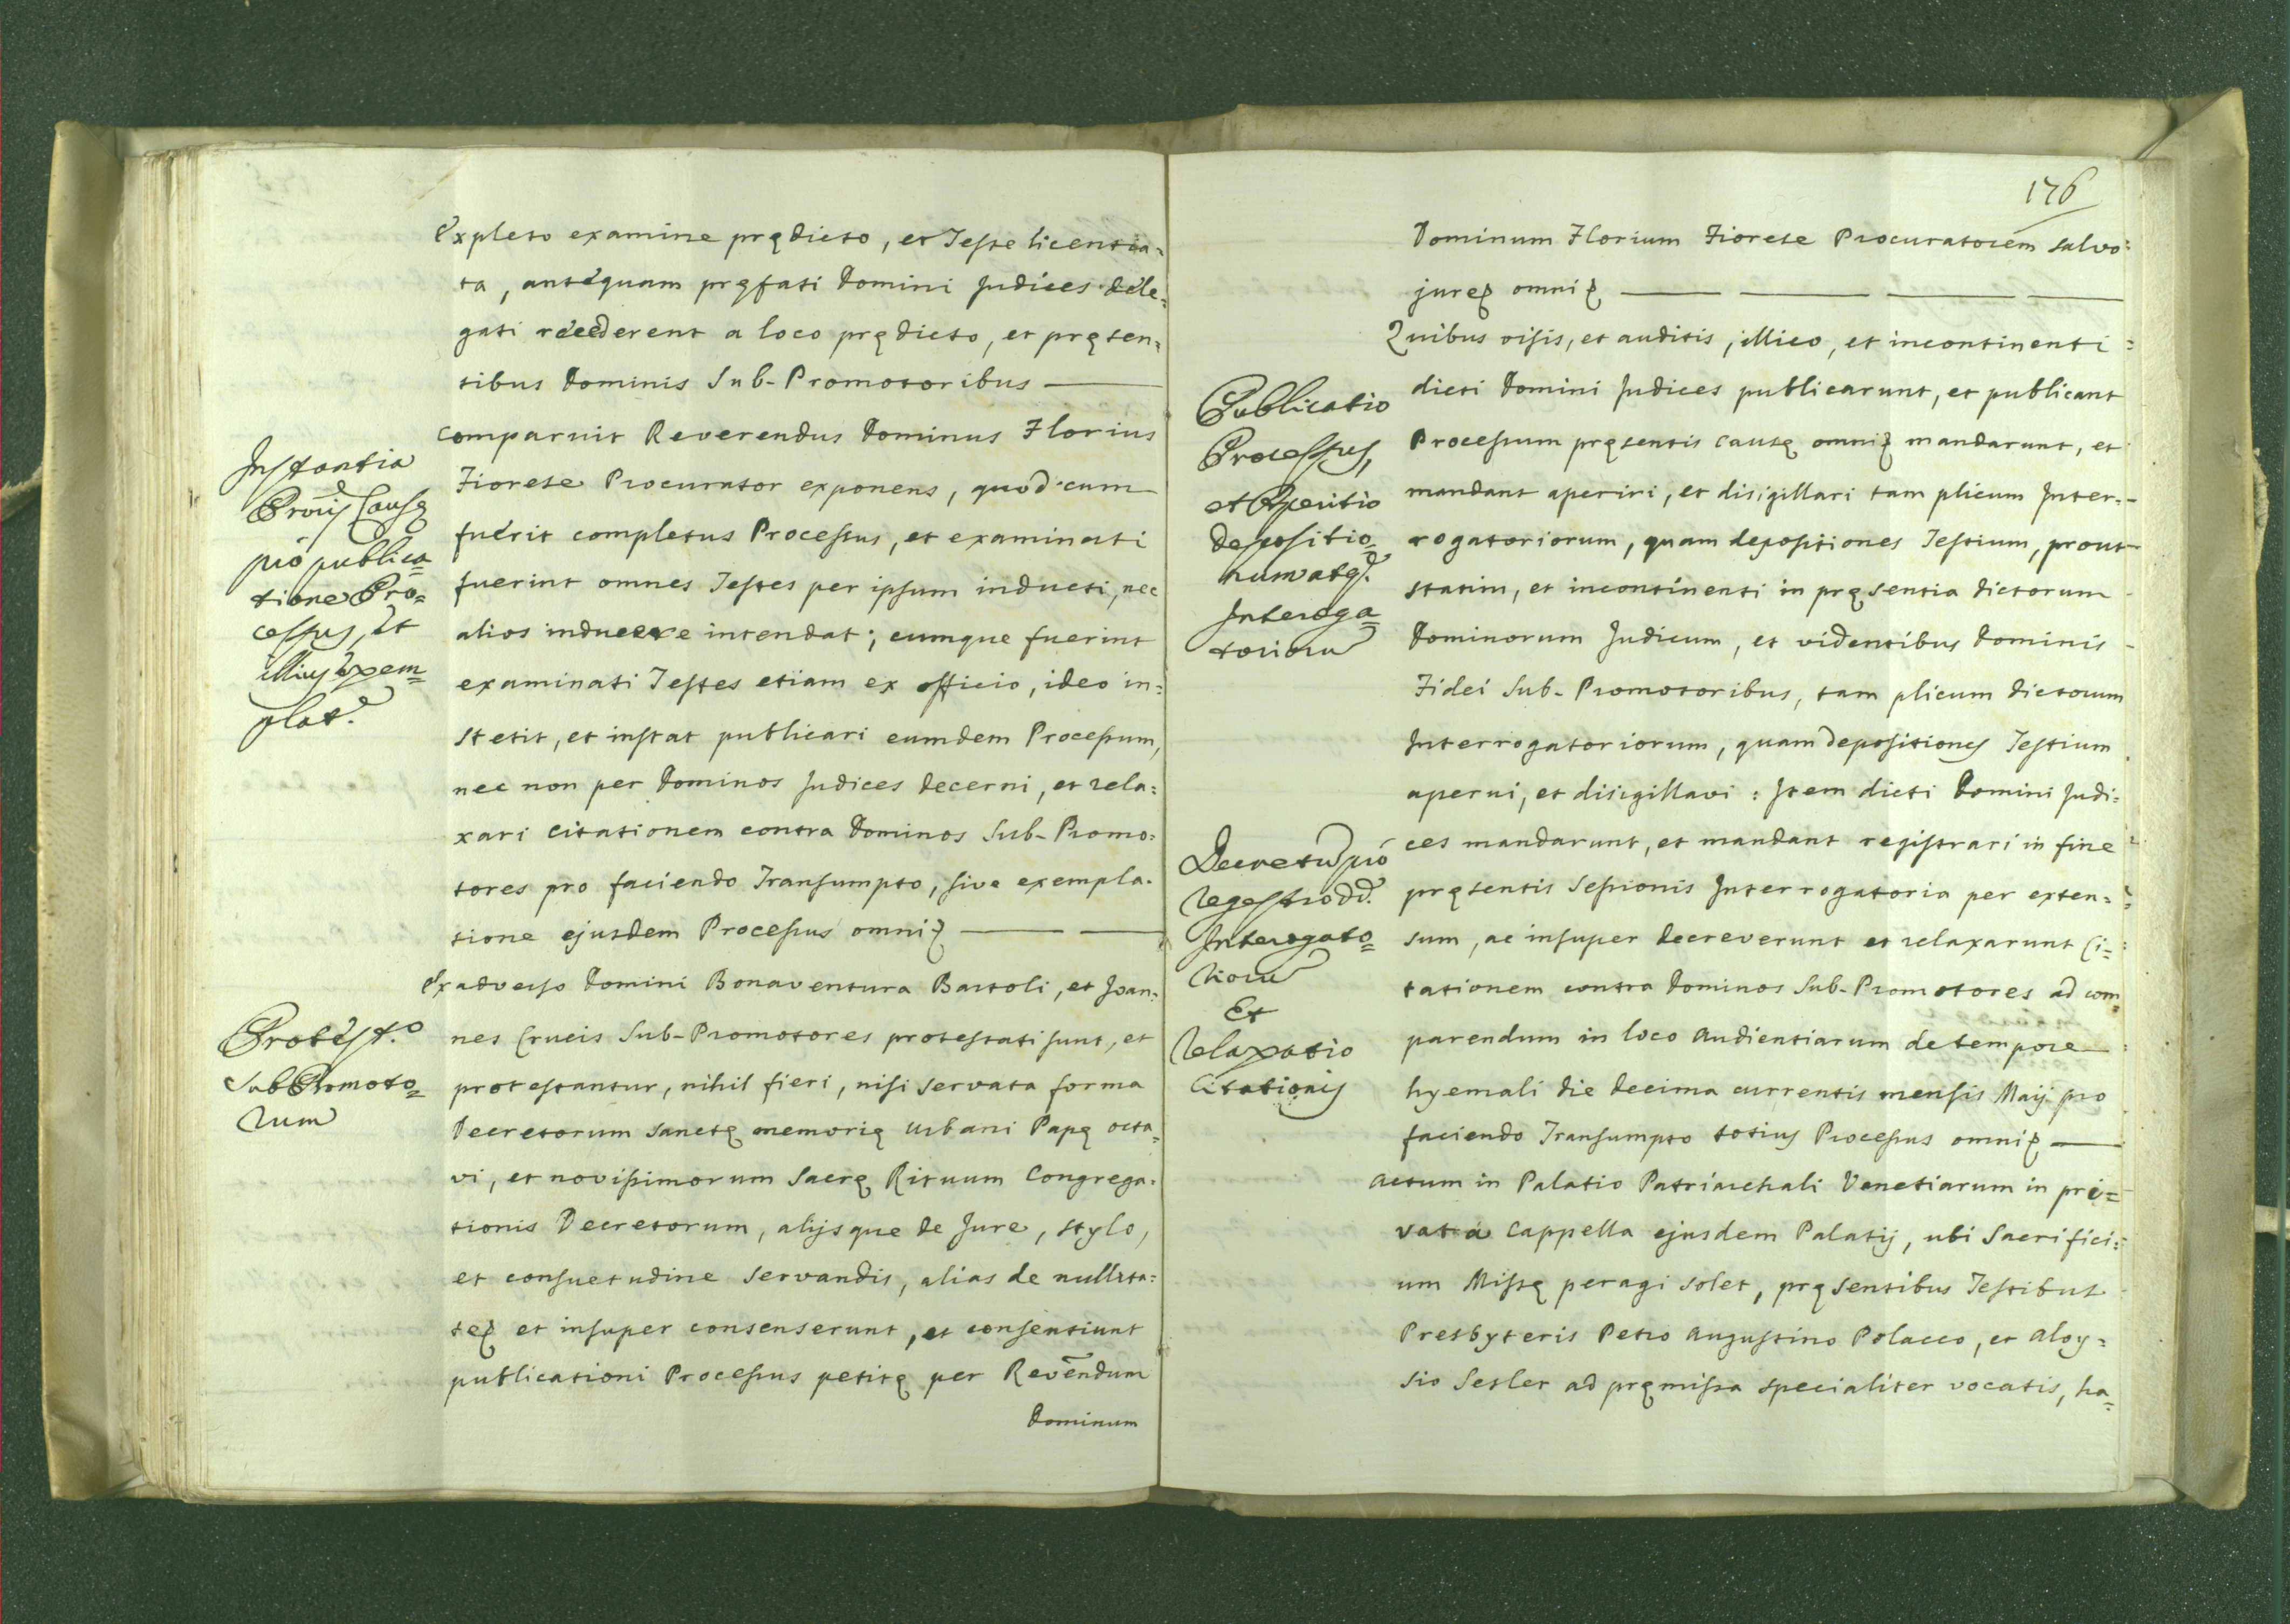 Expleto examine prędicto, et Teste licentia=
ta, antequam pręfati Domini Judices dele=
gati recederent a loco prędicto, et pręsen=
tibus Dominis Sub-Promotoribus
Comparuit Reverendus Dominus Florius
Fiorese Procurator exponens, quod cum
fuerit completus Processus, et examinati
fuerint omnes Testes per ipsum inducti, nec
alios inducere intendat; cumque fuerint
examinati Testes etiam ex officio, ideo in=
stetit, et instat publicari eumdem Processum,
nec non per Dominos Judices decerni, et rela=
xari Citationem contra Dominos Sub-Promo=
tores pro faciendo Transumpto, sive exempla=
tione ejusdem Processus omni
Ex adverso Domini Bonaventura Bartoli, et Joan=
nes Crucis Sub-Promotores protestati sunt, et
protestantur, nihil fieri, nisi servata forma
Decretorum Sanctę memorię Urbani Papę octa=
vi, et novissimorum Sacrę Rituum Congrega=
tionis Decretorum, alijsque de Jure, stylo,
et consuetudine servandis, alias de nullita=
te et insuper consenserunt, et consentiunt
publicationi Processus petitę per Revēndum
Dominum
Instantia
Pro͞ris Causę
pro publica=
tione Pro=
cessus, et
illius exem=
plat.
Protest.o
SubPromoto=
rum
176
Dominum Florium Fiorese Procuratorem salvo=
jure omni
Quibus visis, et auditis, illico, et incontinenti=
dicti Domini Judices publicarunt, et publicant
Processum pręsentis Causę omni mandarunt, et
mandant aperiri, et disigillari tam plicum Inter=
rogatoriorum, quam depositiones Testium, prout
statim, et incontinenti in pręsentia dictorum
Dominorum Judicum, et videntibus Dominis
Fidei Sub-Promotoribus, tam plicum dictorum
Interrogatoriorum, quam depositiones Testium
aperui, et disigillavi: Item dicti Domini Judi=
ces mandarunt, et mandant registrari in fine
pręsentis Sessionis Interrogatoria per exten=
sum, ac insuper decreverunt et relaxarunt Ci=
tationem contra Dominos Sub-Promotores ad com=
parendum in loco Audientiarum de tempore
hyemali die decima currentis mensis Maij pro
faciendo Transumpto totius Processus omni
Actum in Palatio Patriarchali Venetiarum in pri=
vata Cappella ejusdem Palatij, ubi Sacrifici=
um Missę peragi solet, pręsentibus Testibus
Presbyteris Petro Augustino Polacco, et Aloy=
sio Sesler ad pręmissa specialiter vocatis, ha=
Publicatio
Processus,
et Apertio
depositio=
num atq.
Interoga=
toriorū
Decretū pro
Regestro dd.
Interogato=
riorū
Et
Relaxatio
Citationis